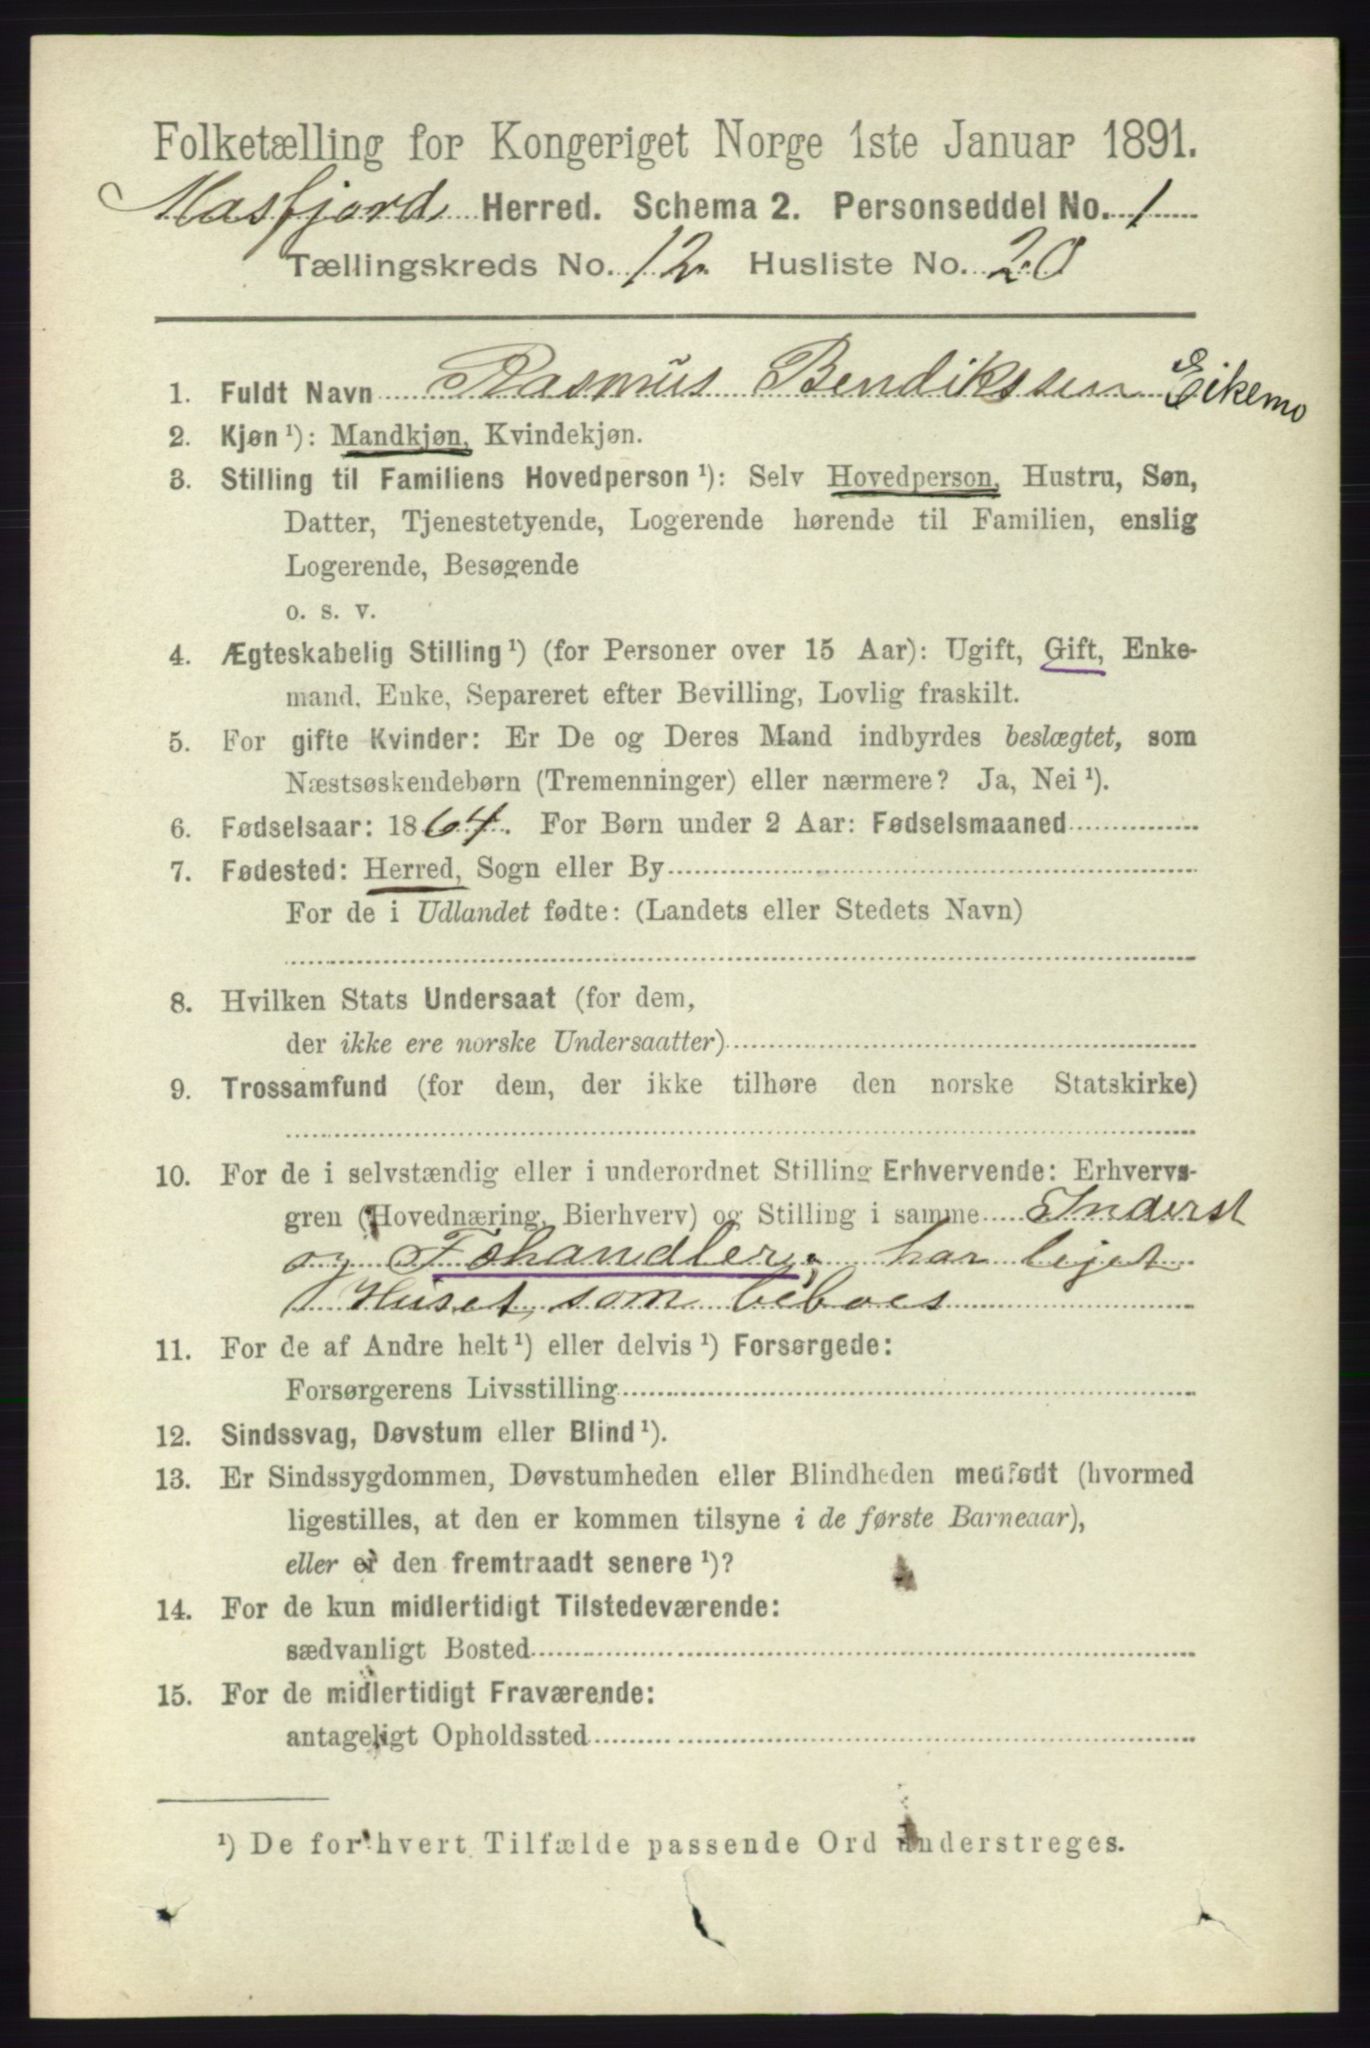 Folketælling for Kongeriget Norge 1ste Januar 1891.
Masfjord Herred. Schema 2. Personseddel No. 1
Tællingskreds No. 12. Husliste No. 20
1. Fuldt Navn Rasmus Bendikssen Eikemo
2. Kjøn ¹): Mandkjøn, Kvindekjøn.
3. Stilling til Familiens Hovedperson ¹): Selv Hovedperson, Hustru, Søn,
Datter, Tjenestetyende, Logerende hørende til Familien, enslig
Logerende, Besøgende
o. s. v.
4. Ægteskabelig Stilling ¹) (for Personer over 15 Aar): Ugift, Gift, Enke-
mand, Enke, Separeret efter Bevilling, Lovlig fraskilt.
5. For gifte Kvinder: Er De og Deres Mand indbyrdes beslægtet, som
Næstsøskendebørn (Tremenninger) eller nærmere? Ja, Nei ¹).
6. Fødselsaar: 1864. For Børn under 2 Aar: Fødselsmaaned
7. Fødested: Herred, Sogn eller By
For de i Udlandet fødte: (Landets eller Stedets Navn)
8. Hvilken Stats Undersaat (for dem,
der ikke ere norske Undersaatter)
9. Trossamfund (for dem, der ikke tilhøre den norske Statskirke)
10. For de i selvstændig eller i underordnet Stilling Erhvervende: Erhvervs-
gren (Hovednæring, Bierhverv) og Stilling i samme Inderst
og Fæhandler, har lejet
Huset som bëboes
11. For de af Andre helt ¹) eller delvis ¹) Forsørgede:
Forsørgerens Livsstilling
12. Sindssvag, Døvstum eller Blind ¹).
13. Er Sindssygdommen, Døvstumheden eller Blindheden medfødt (hvormed
ligestilles, at den er kommen tilsyne i de første Barneaar),
eller er den fremtraadt senere ¹)?
14. For de kun midlertidigt Tilstedeværende:
sædvanligt Bosted
15. For de midlertidigt Fraværende:
antageligt Opholdssted
¹) De for hvert Tilfælde passende Ord understreges.